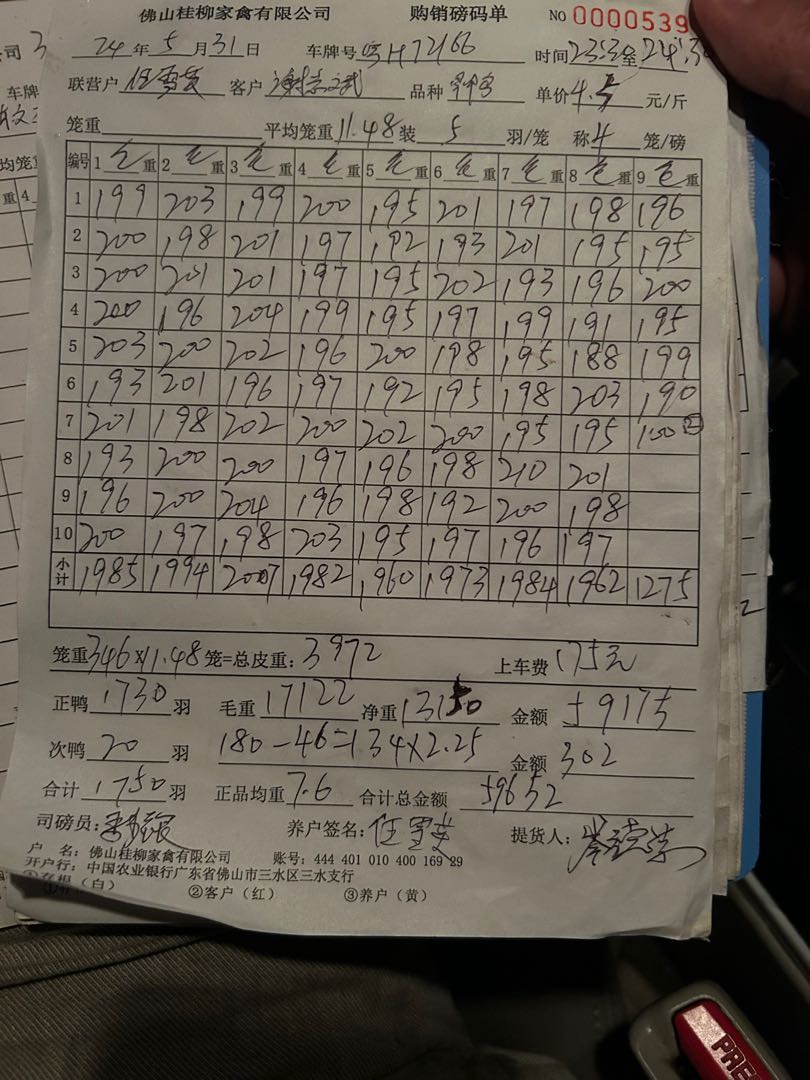 佛山桂柳家禽有限公司 购销磅码单 NO 0000539
24年5月31日 车牌号 H72166 时间23:3至24:30
联营户 任雪英 客户 谢志武 品种 单价4.5元/斤
笼重 平均笼重11.48装5羽/笼 称4笼/磅
编号 1 毛重 2 毛重 3 毛重 4 毛重 5 毛重 6 毛重 7 毛重 8 毛重 9 毛重
1 199 203 199 200 195 201 197 198 196
2 200 198 201 197 192 193 201 195 195
3 200 201 201 197 195 202 193 196 200
4 200 196 204 199 195 197 199 191 195
5 203 200 202 196 200 198 195 188 199
6 193 201 196 197 192 195 198 203 190
7 201 198 202 200 202 200 195 195 100②
8 193 200 200 197 196 198 210 201
9 196 200 204 196 198 192 200 198
10 200 197 198 203 195 197 196 197
小计 1985 1994 2007 1982 1960 1973 1984 1962 1275
笼重346×11.48笼=总皮重:3972 上车费175元
正鸭1730羽 毛重17122 净重13150 金额59175
次鸭20羽 180-46=134×2.25 金额302
合计1750羽 正品均重7.6 合计总金额59652
司磅员: 养户签名:任雪英 提货人:
户 名:佛山桂柳家禽有限公司 账号:444 401 010 400 169 29
开户行:中国农业银行广东省佛山市三水区三水支行
①存根(白) ②客户(红) ③养户(黄)